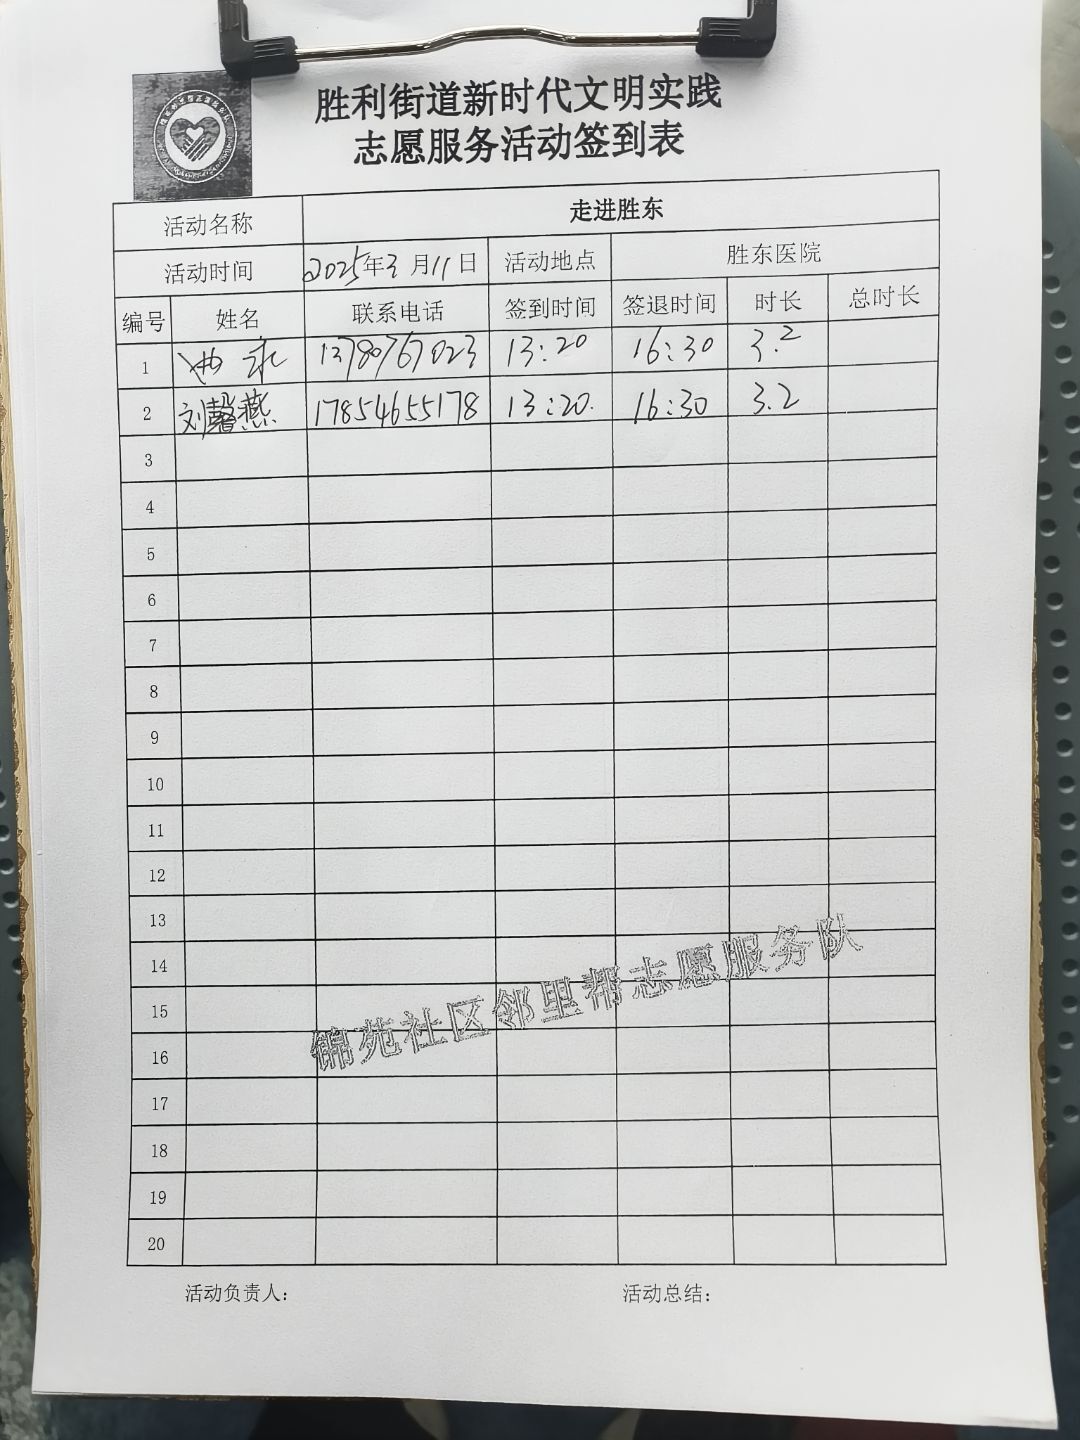 胜利街道新时代文明实践
志愿服务活动签到表
活动名称 走进胜东
活动时间 2025年3月11日 活动地点 胜东医院
编号 姓名 联系电话 签到时间 签退时间 时长 总时长
1 13780767023 13:20 16:30 3.2
2 刘馨燕 17854655178 13:20. 16:30 3.2
3
4
5
6
7
8
9
10
11
12
13
14
15
16
17
18
19
20
锦苑社区邻里帮志愿服务队
活动负责人: 活动总结: